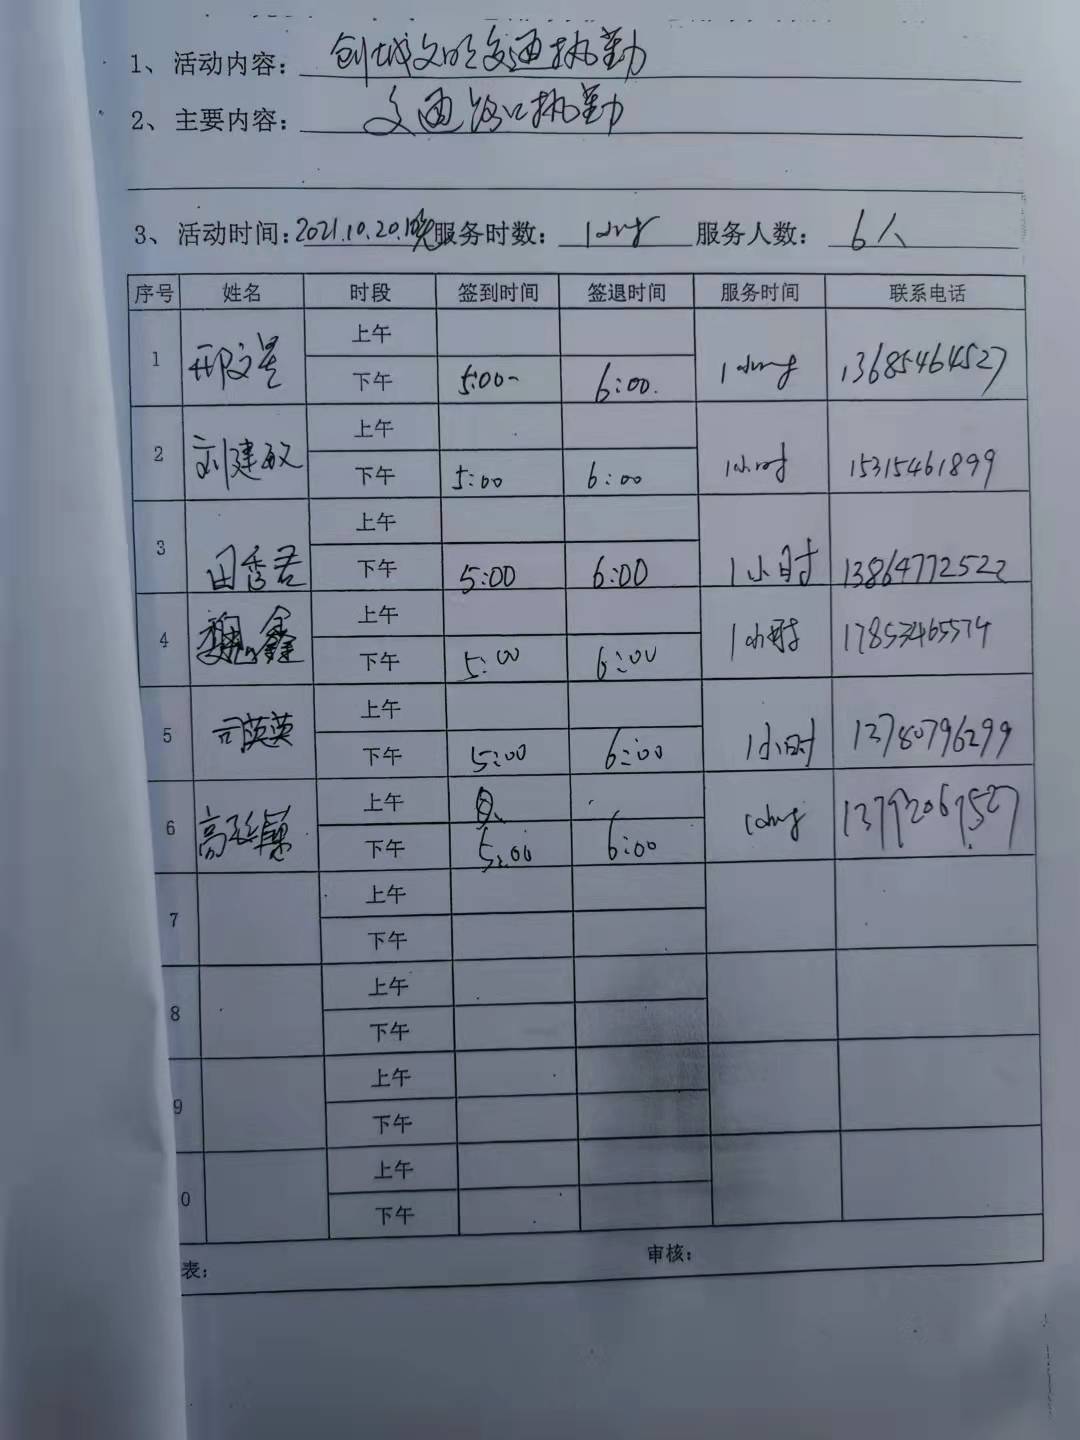 1、活动内容：创城文明交通执勤
2、主要内容：交通路口执勤
3、活动时间：2021.10.20.晚 服务时数：1小时 服务人数：6人
序号 姓名 时段 签到时间 签退时间 服务时间 联系电话
1 邢文景 上午
下午 5:00 6:00. 1小时 13685464527
2 刘建敏 上午
下午 5:00 6:00 1小时 15315461899
3 田秀君 上午
下午 5:00 6:00 1小时 13864772522
4 魏鑫 上午
下午 5:00 6:00 1小时 17853465574
5 司英英 上午
下午 5:00 6:00 1小时 13780796299
6 高 上午
下午 5:00 6:00 1小时 13792067527
7 上午
下午
8 上午
下午
9 上午
下午
0 上午
下午
表： 审核：